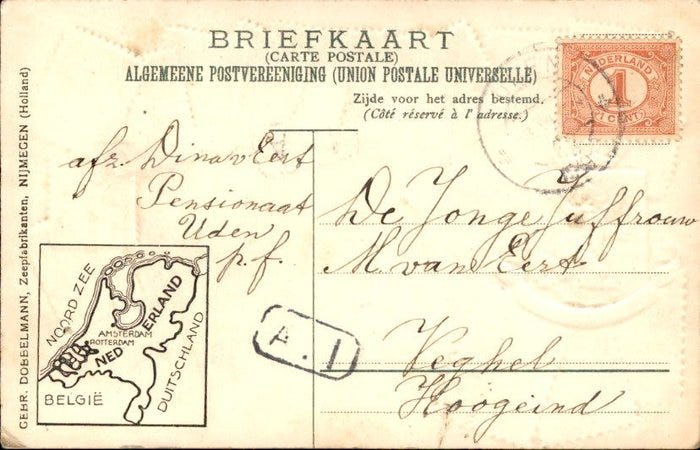 BRIEFKAART
(CARTE POSTALE)
ALGEMEENE POSTVEREENIGING (UNION POSTALE UNIVERSELLE)
Zijde voor het adres bestemd.
(Côté réservé à l'adresse.)
NEDERLAND
1
1 CENT
afz. Dina v Eert
Pensionaat
Uden
p.f.
De Jonge Juffrouw
M. van Eert
Veghel
Hoogeind
A.1
NOORD ZEE
AMSTERDAM
ROTTERDAM
NEDERLAND
DUITSCHLAND
BELGIË
GEBR. DOBBELMANN, Zeepfabrikanten, NIJMEGEN (Holland)